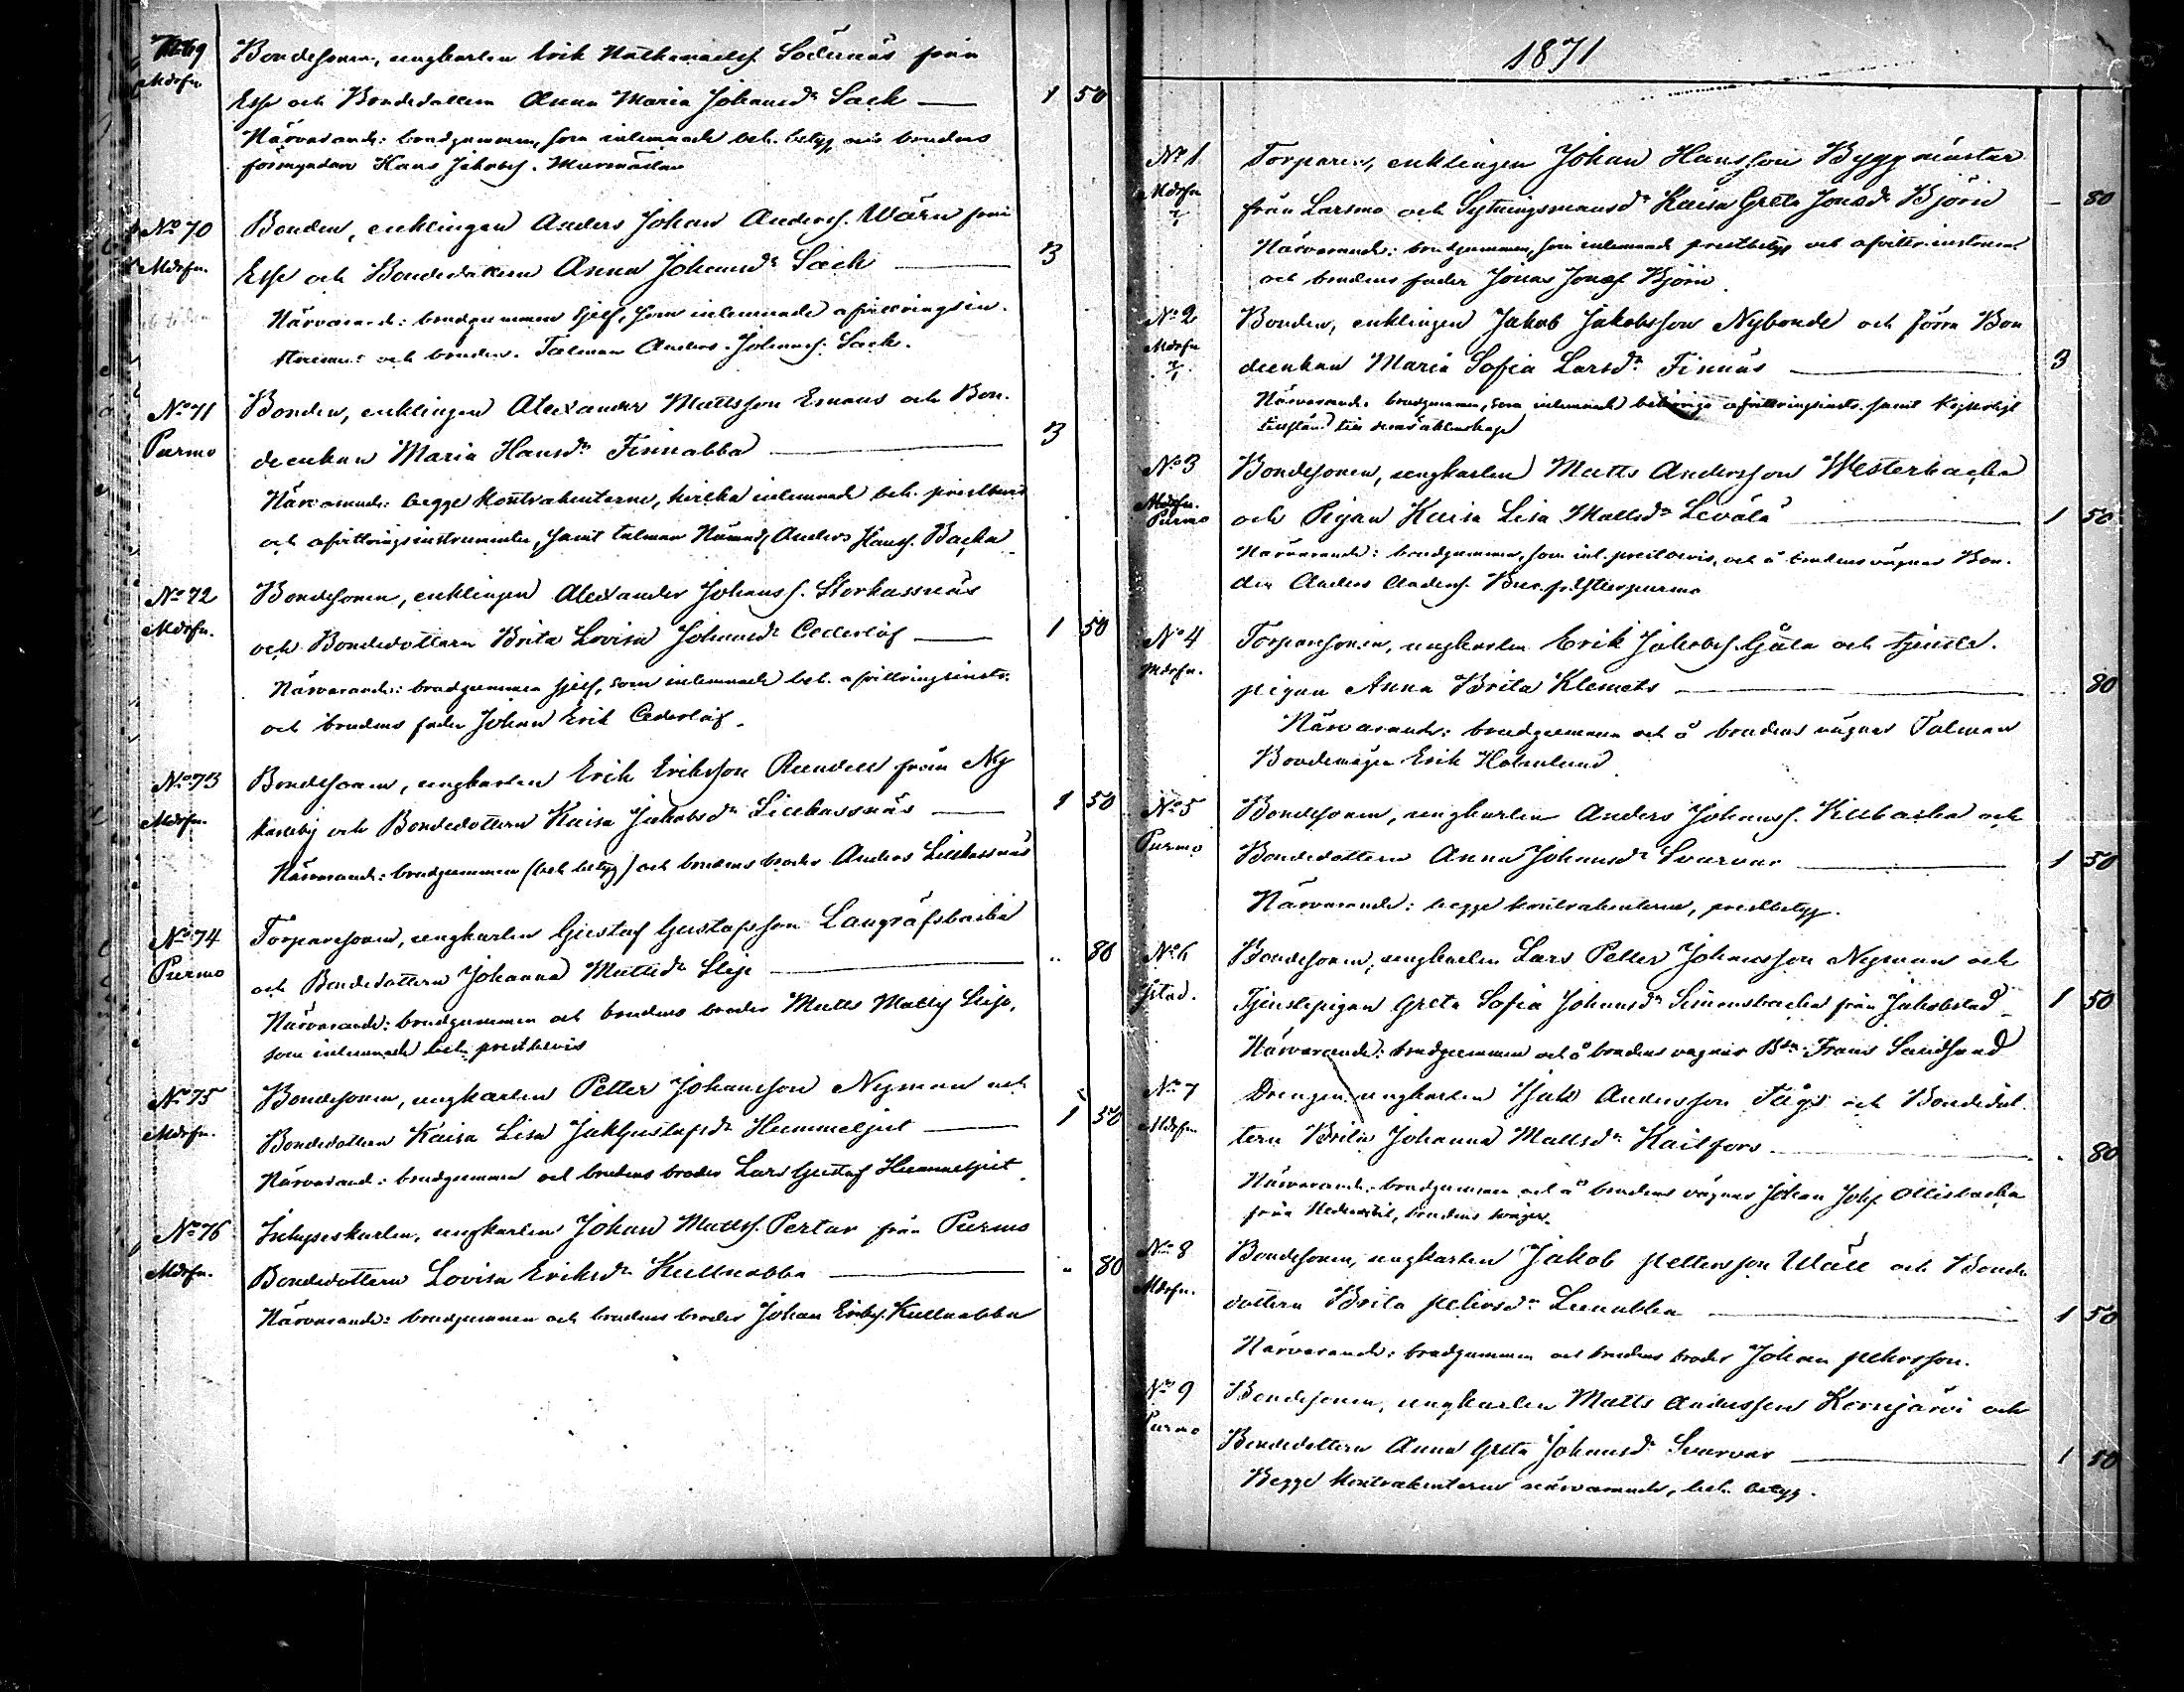 69 Bondesonen, ungkarlen Erik Mathsson Södernäs från
Mdrsn
Esse och Bondedottern Anna Maria Johansdr Sack — 1 50
Närvarande: brudgummen, som inlemnade beh. betyg och brudens
förmyndare Hans Jakobss.
No 70 Bonden, enklingen Anders Johan Anderss. Wärn från
Mdrsn. Esse och Bondedottern Anna Johansdr Sack — 3
Närvarande: brudgummen sjelf, som inlemnade afvittringsin-
strument och brudens Talman Anders Johanss. Sack.
No 71 Bonden, enklingen Alexander Mattsson Emaus och Bon-
Purmo deenkan Maria Hansdr Finnabba — 3
Närvarande: begge kontrahenterne, hvilka inlemnade beh. prestbevis
och afvittringsinstrumenter, samt talman Nämndm. Anders Hanss. Backa
No 72 Bondesonen, enklingen Alexander Johanss. Storkassnäs
Mdrsn. och Bondedottern Brita Lovisa Johansdr Cederlöf — 1 50
Närvarande: brudgummen sjelf, som inlemnade beh. afvittringsinstr.
och brudens fader Johan Erik Cederlöf.
No 73 Bondesonen, ungkarlen Erik Eriksson Rundell från Ny
Mdrsn. karleby och Bondedottern Kaisa Jakobsdr Lillkassnäs — 1 50
Närvarande: brudgummen (beh betyg) och brudens broder Anders Lillkassnäs
No 74 Torparesonen, ungkarlen Gustaf Gustafsson Langräfsbacka
Purmo och Bondedottern Johanna Mattsdr Slip — " 80
Närvarande: brudgummen och brudens broder Matts Mattss Slip,
som inlemnade beh. prestbevis
No 75 Bondesonen, ungkarlen Petter Johansson Nyman och
Mdrsn. Bondedottern Kaisa Lisa Jak Gustafsdr Hummeljut — 1 50
Närvarande: brudgummen och brudens broder Lars Gustaf Hummeljut.
No 76 Inhyseskarlen, ungkarlen Johan Mattss. Pertar från Purmo
Mdrsn. Bondedottern Lovisa Eriksdr Kullnabba — " 80
Närvarande: brudgummen och brudens broder Johan Erikss. Kullnabba
1871
No 1 Torparen, enklingen Johan Hansson Byggmästar
Mdrsn från Larsmo och Sytningsmansdr Kaisa Greta Jonsdr Björn — 80
Närvarande: brudgummen, som inlemnade prestbetyg och afvittr.instrum.
och brudens fader Jonas Jonass Björn.
No 2 Bonden, enklingen Jakob Jakobsson Nybonde och förra Bon
Mdrsn deenkan Maria Sofia Larsdr Finnäs — 3
Närvarande: brudgummen, som inlemnade behöriga afvittringsinstr. samt Kejserligt
tillstånd till deras äktenskap
No 3 Bondesonen, ungkarlen Matts Andersson Westerbacka
Mdrsn.
Purmo och Pigan Kaisa Lisa Mattsdr Levälä — 1 50
Närvarande: brudgummen, som inl. prestbevis, och å brudens vägnar Bon-
den Anders Anderss. Ytterpurmo
No 4 Torparesonen, ungkarlen Erik Jakobss. Gåla och tjenste-
Mdrsn. pigan Anna Brita Klemets — 80
Närvarande: brudgummen och å brudens vägnar Talman
Bondemågen Erik Holmlund
No 5 Bondesonen, ungkarlen Anders Johanss. Killbacka och
Purmo Bondedottern Anna Johansdr Svarvar — 1 50
Närvarande: begge kontrahenterne, prestbetyg.
No 6 Bondesonen, ungkarlen Lars Petter Johansson Nyman och
Jstad. Tjenstepigan Greta Sofia Johansdr Simonsbacka från Jakobstad — 1 50
Närvarande: brudgummen och å brudens vägnar Bdn. Frans Sandsund
No 7 Drengen ungkarlen Isak Andersson Fågs och Bondedot-
Mdrsn. tern Brita Johanna Mattsdr Kailfors — 80
Närvarande: brudgummen och å brudens vägnar Johan Johss Ollisbacka
från, brudens svåger.
No 8 Bondesonen, ungkarlen Jakob Pettersson Wäll och Bonde
Mdrsn. dottern Brita Petersdr Lunabba — 1 50
Närvarande: brudgummen och brudens broder Johan Petersson.
No 9 Bondesonen, ungkarlen Matts Andersson Kornjärvi och
Purmo Bondedottern Anna Greta Johansdr Svarvar — 1 50
Begge kontrahenterne närvarande, beh. betyg.